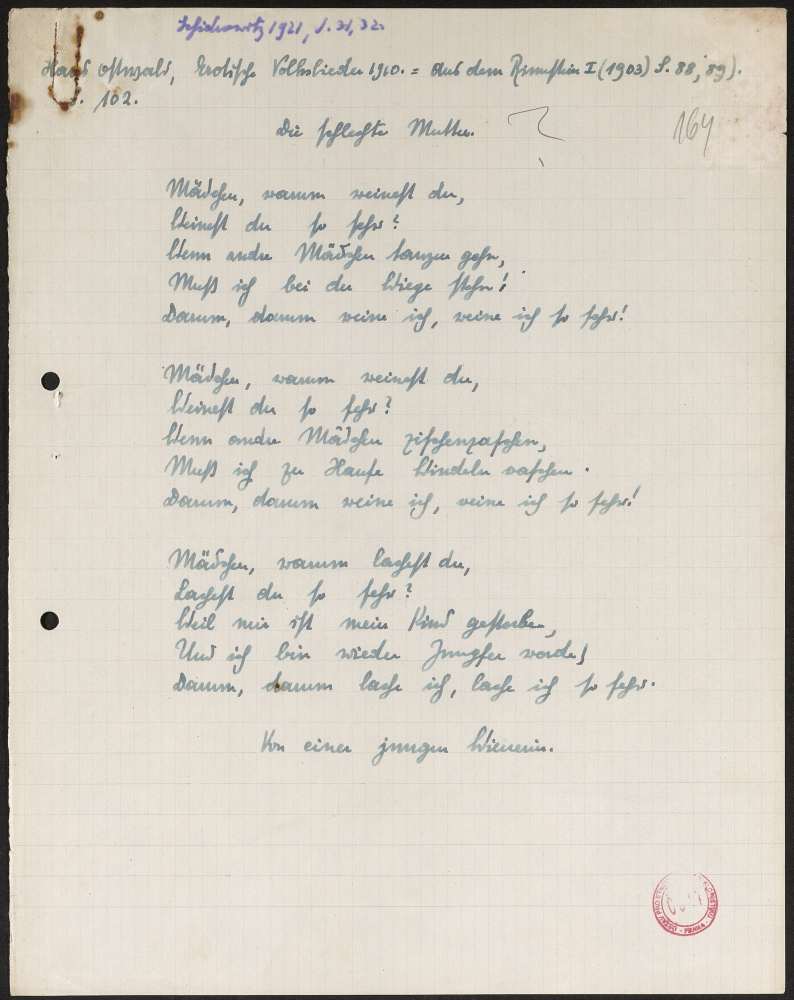 Schidrowitz 1921, S. 31, 32.
Hans Ostwald, Erotische Volkslieder 1910. = Aus dem Rinnstein I (1903) S. 88, 89).
S. 102.
Die schlechte Mutter. ?
164
Mädchen, warum weinest du,
Weinest du so sehr?
Wenn andre Mädchen tanzen gehn,
Muß ich bei der Wiege stehn!
Darum, darum weine ich, weine ich so sehr!
Mädchen, warum weinest du,
Weinest du so sehr?
Wenn andre Mädchen zischenzaschen,
Muß ich zu Hause Windeln waschen.
Darum, darum weine ich, weine ich so sehr!
Mädchen, warum lachest du,
Lachest du so sehr?
Weil mir ist mein Kind gestorben,
Und ich bin wieder Jungfer worde!
Darum, darum lache ich, lache ich so sehr.
Von einer jungen Wienerin.
PRAHA